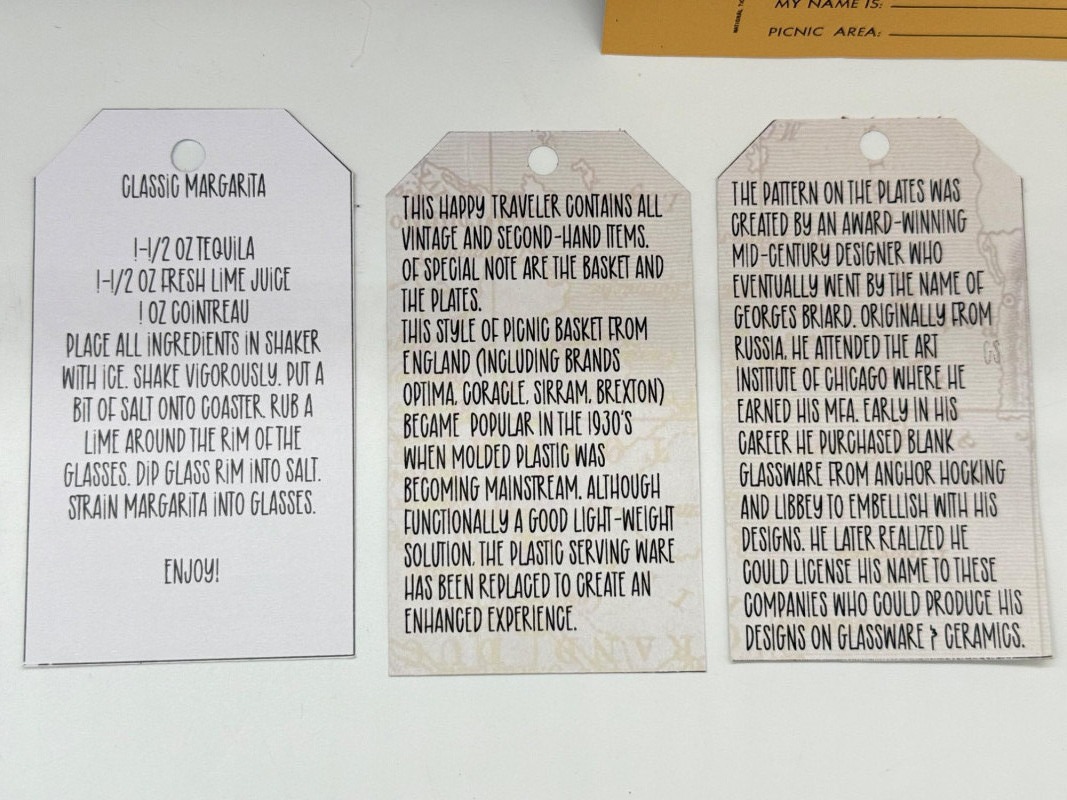 MY NAME IS:
PICNIC AREA:
CLASSIC MARGARITA
1-1/2 OZ TEQUILA
1-1/2 OZ FRESH LIME JUICE
1 OZ COINTREAU
PLACE ALL INGREDIENTS IN SHAKER
WITH ICE. SHAKE VIGOROUSLY. PUT A
BIT OF SALT ONTO COASTER. RUB A
LIME AROUND THE RIM OF THE
GLASSES. DIP GLASS RIM INTO SALT.
STRAIN MARGARITA INTO GLASSES.
ENJOY!
THIS HAPPY TRAVELER CONTAINS ALL
VINTAGE AND SECOND-HAND ITEMS.
OF SPECIAL NOTE ARE THE BASKET AND
THE PLATES.
THIS STYLE OF PICNIC BASKET FROM
ENGLAND (INCLUDING BRANDS
OPTIMA, CORACLE, SIRRAM, BREXTON)
BECAME POPULAR IN THE 1930'S
WHEN MOLDED PLASTIC WAS
BECOMING MAINSTREAM. ALTHOUGH
FUNCTIONALLY A GOOD LIGHT-WEIGHT
SOLUTION, THE PLASTIC SERVING WARE
HAS BEEN REPLACED TO CREATE AN
ENHANCED EXPERIENCE.
THE PATTERN ON THE PLATES WAS
CREATED BY AN AWARD-WINNING
MID-CENTURY DESIGNER WHO
EVENTUALLY WENT BY THE NAME OF
GEORGES BRIARD. ORIGINALLY FROM
RUSSIA, HE ATTENDED THE ART
INSTITUTE OF CHICAGO WHERE HE
EARNED HIS MFA. EARLY IN HIS
CAREER HE PURCHASED BLANK
GLASSWARE FROM ANCHOR HOCKING
AND LIBBEY TO EMBELLISH WITH HIS
DESIGNS. HE LATER REALIZED HE
COULD LICENSE HIS NAME TO THESE
COMPANIES WHO COULD PRODUCE HIS
DESIGNS ON GLASSWARE & CERAMICS.